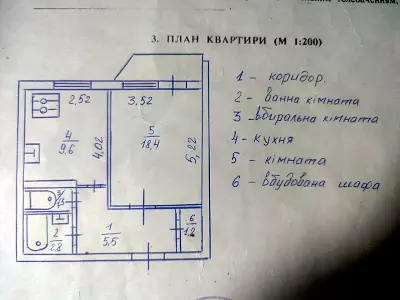 телебаченням,
3. ПЛАН КВАРТИРИ (М 1:200)
1 - коридор.
2 - ванна кімната
3 - вбиральна кімната
4 - кухня
5 - кімната
6 - вбудована шафа
2,52
3,52
4
9.6
4,02
5
18,4
5,22
3
2
2.8
1
5,5
6
1.2